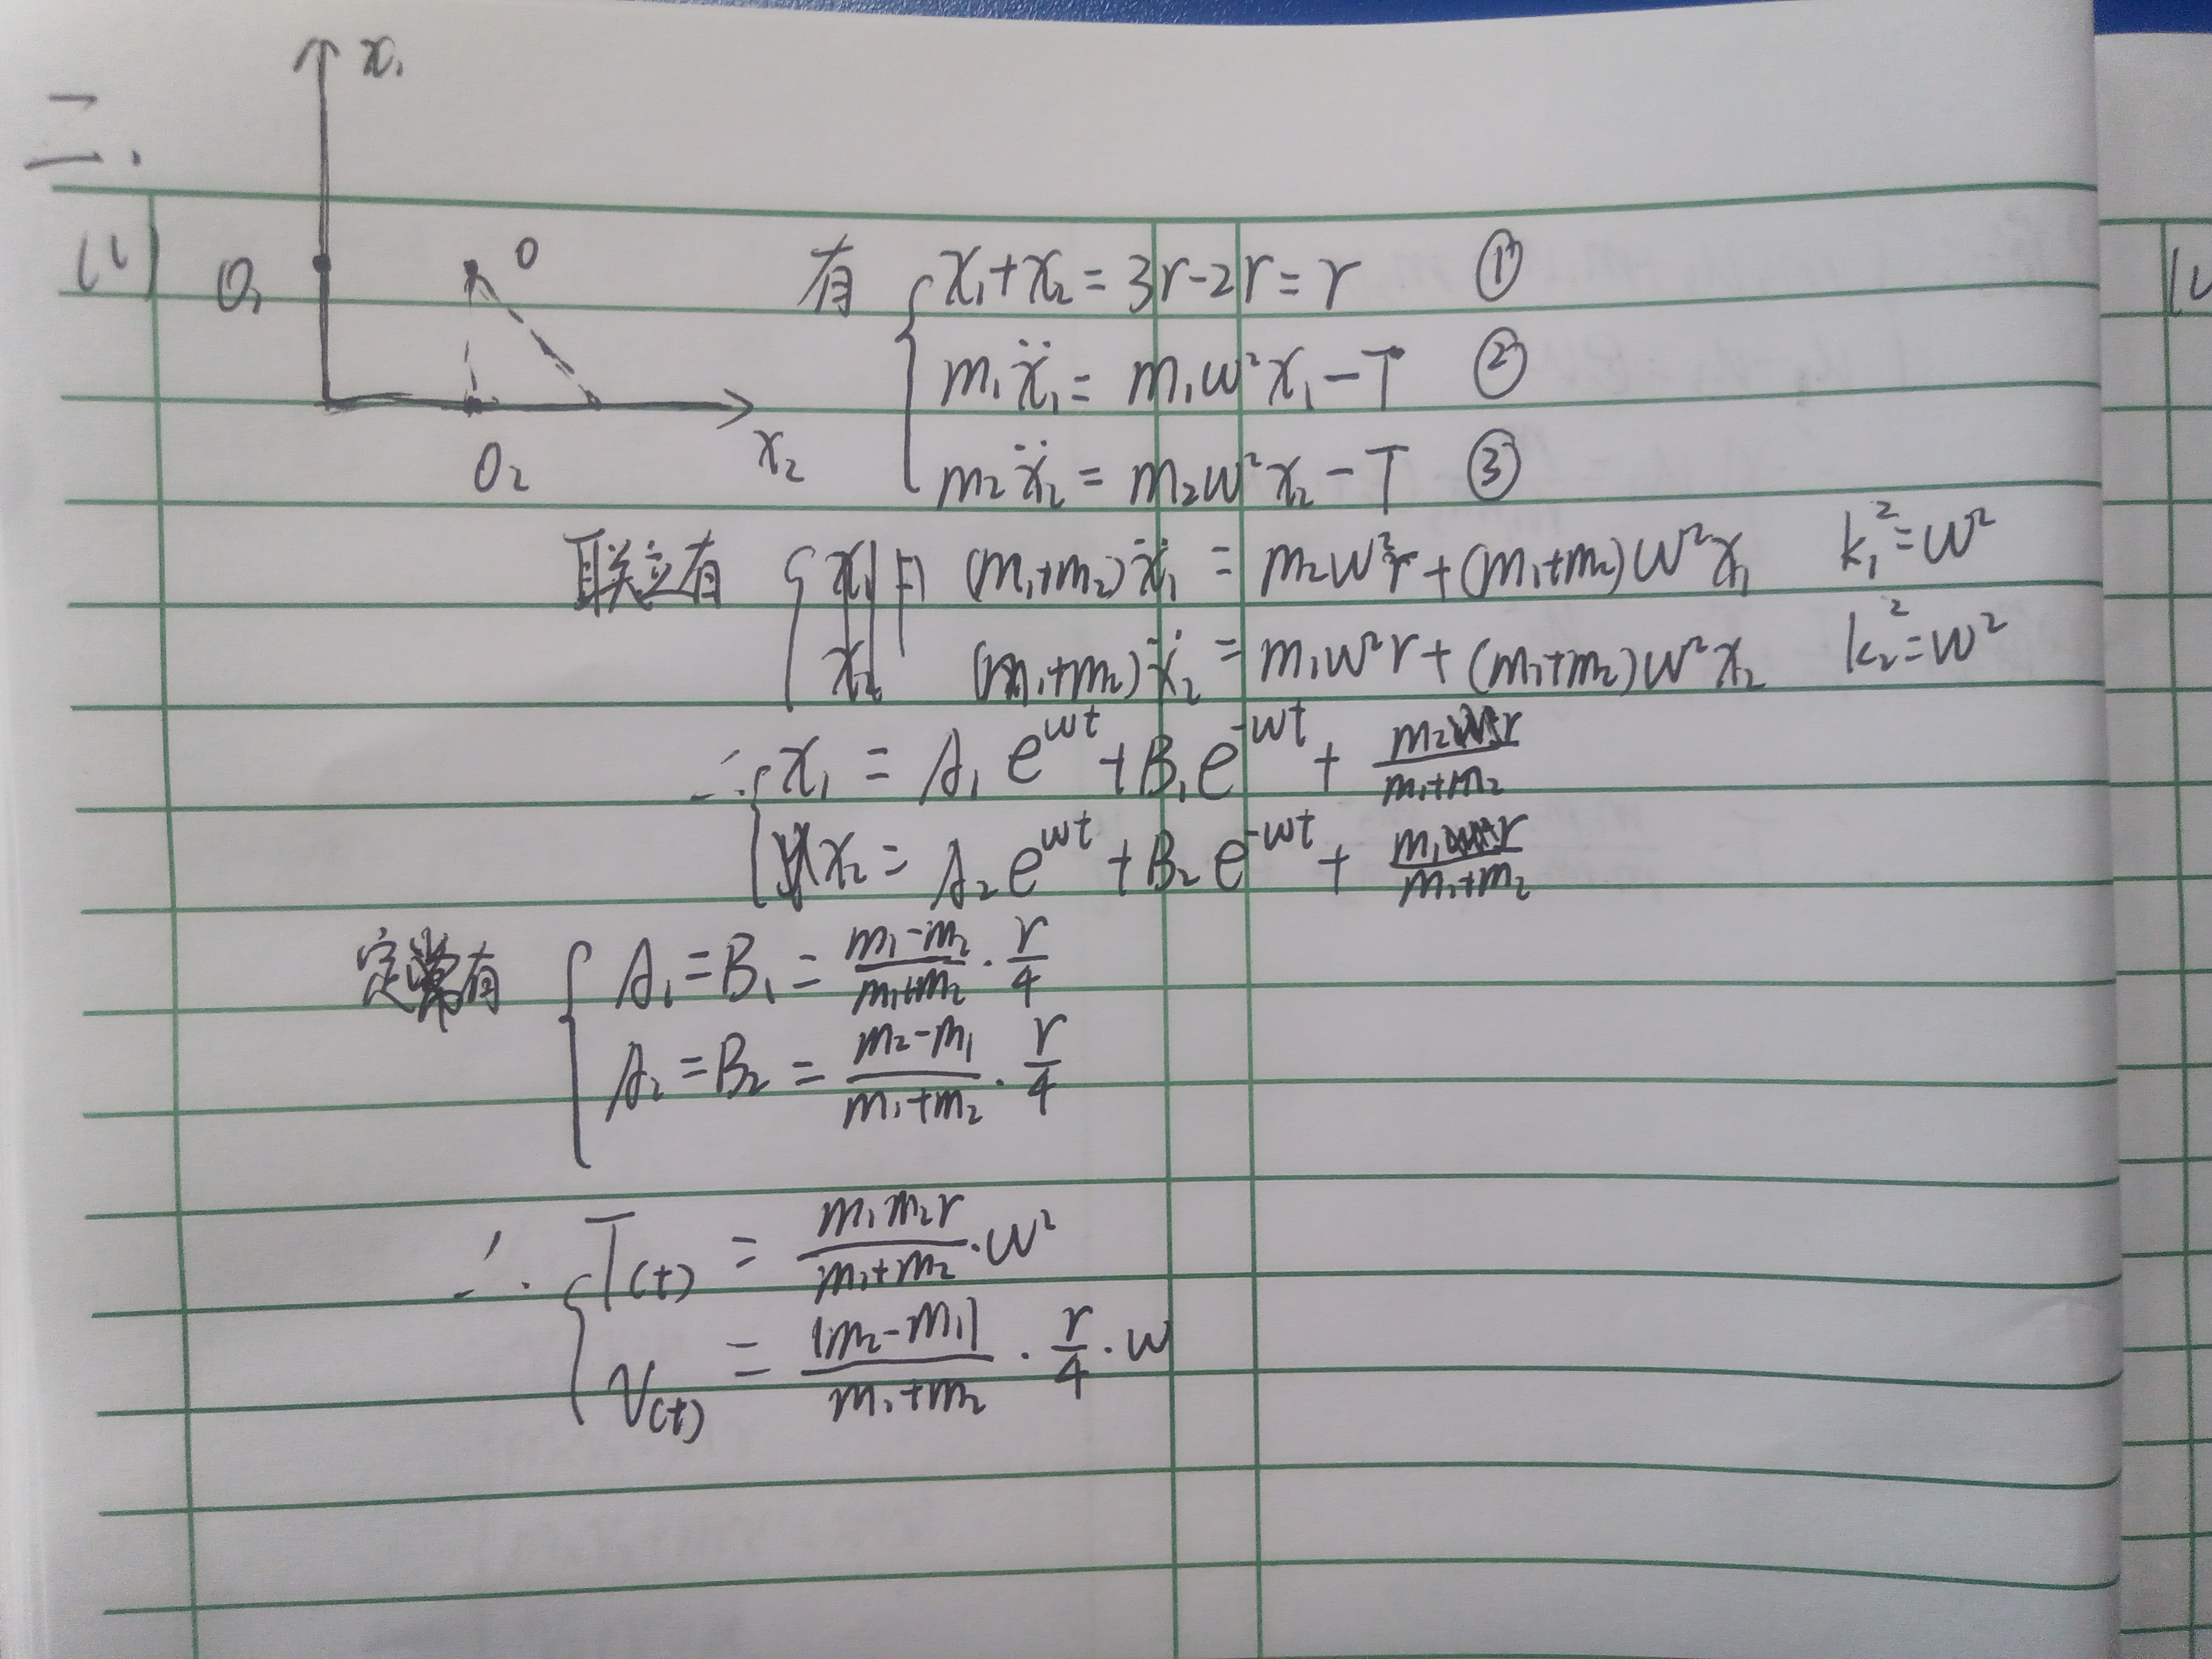 二.
x₁
(1)
O₁
O
O₂
x₂
有 { x₁+x₂ = 3r-2r = r ①
m₁ẍ₁ = m₁w²x₁ - T ②
m₂ẍ₂ = m₂w²x₂ - T ③
联立有 { (m₁+m₂)ẍ₁ = m₂w²r + (m₁+m₂)w²x₁ k₁² = w²
(m₁+m₂)ẍ₂ = m₁w²r + (m₁+m₂)w²x₂ k₂² = w²
∴ { x₁ = A₁e^{wt} + B₁e^{-wt} + m₂r/(m₁+m₂)
x₂ = A₂e^{wt} + B₂e^{-wt} + m₁r/(m₁+m₂)
定常有 { A₁ = B₁ = (m₁-m₂)/(m₁+m₂) · r/4
A₂ = B₂ = (m₂-m₁)/(m₁+m₂) · r/4
∴ { T(t) = m₁m₂r/(m₁+m₂) · w²
V(t) = |m₂-m₁|/(m₁+m₂) · r/4 · w